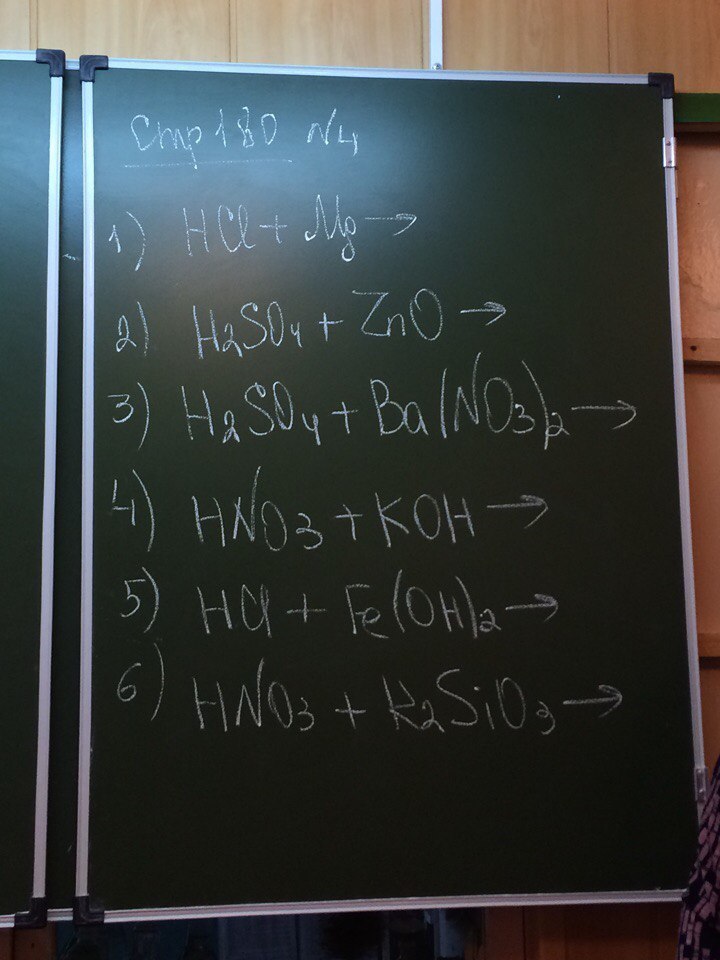 Стр 180 N4
1) HCl + Mg →
2) H2SO4 + ZnO →
3) H2SO4 + Ba(NO3)2 →
4) HNO3 + KOH →
5) HCl + Fe(OH)2 →
6) HNO3 + K2SiO3 →